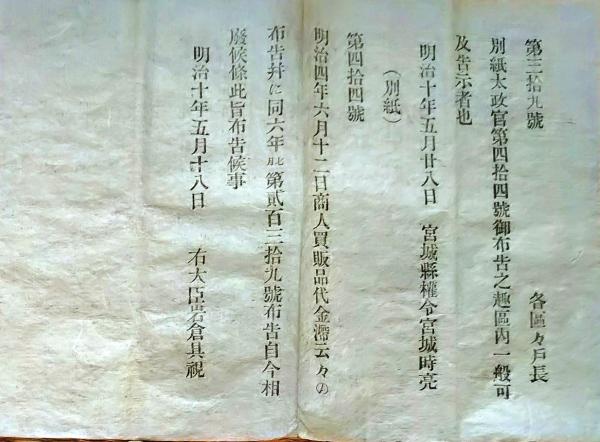 第三拾九號
各區々戸長
別紙太政官第四拾四號御布告之趣區内一般可
及告示者也
明治十年五月廿八日 宮城縣權令宮城時亮
(別紙)
第四拾四號
明治四年六月十二日商人買販品代金滯云々の
布告并に同六年此第貳百三拾九號布告自今相
廢候條此旨布告候事
明治十年五月十八日 右大臣岩倉具視